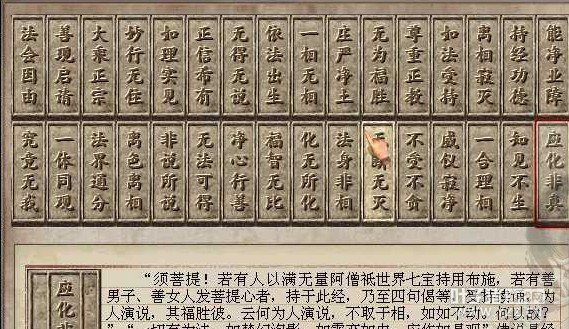 法会因由
善现启请
大乘正宗
妙行无住
如理实见
正信希有
无得无说
依法出生
一相无相
庄严净土
无为福胜
尊重正教
如法受持
离相寂灭
持经功德
能净业障
究竟无我
一体同观
法界通分
离色离相
非说所说
无法可得
净心行善
福智无比
化无所化
法身非相
无断无灭
不受不贪
威仪寂净
一合理相
知见不生
应化非真
应化非
“须菩提！若有人以满无量阿僧祇世界七宝持用布施，若有善
男子、善女人发菩提心者，持于此经，乃至四句偈等，受持读诵，为
人演说，其福胜彼。云何为人演说，不取于相，如如不动。何以故？
“一切有为法，如梦幻泡影，如露亦如电，应作如是观